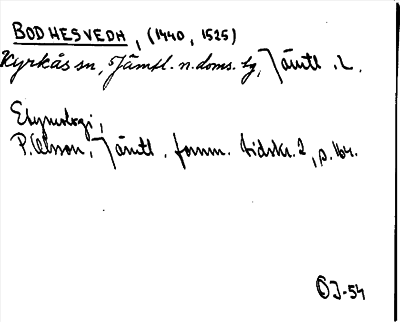 BODHESVEDH, (1440, 1525)
Kyrkås sn, Jämtl. n. doms. tg, Jämtl. L.
Etymologi,
P. Olsson, Jämtl. fornm. tidskr. 2, s. 164.
OJ-54